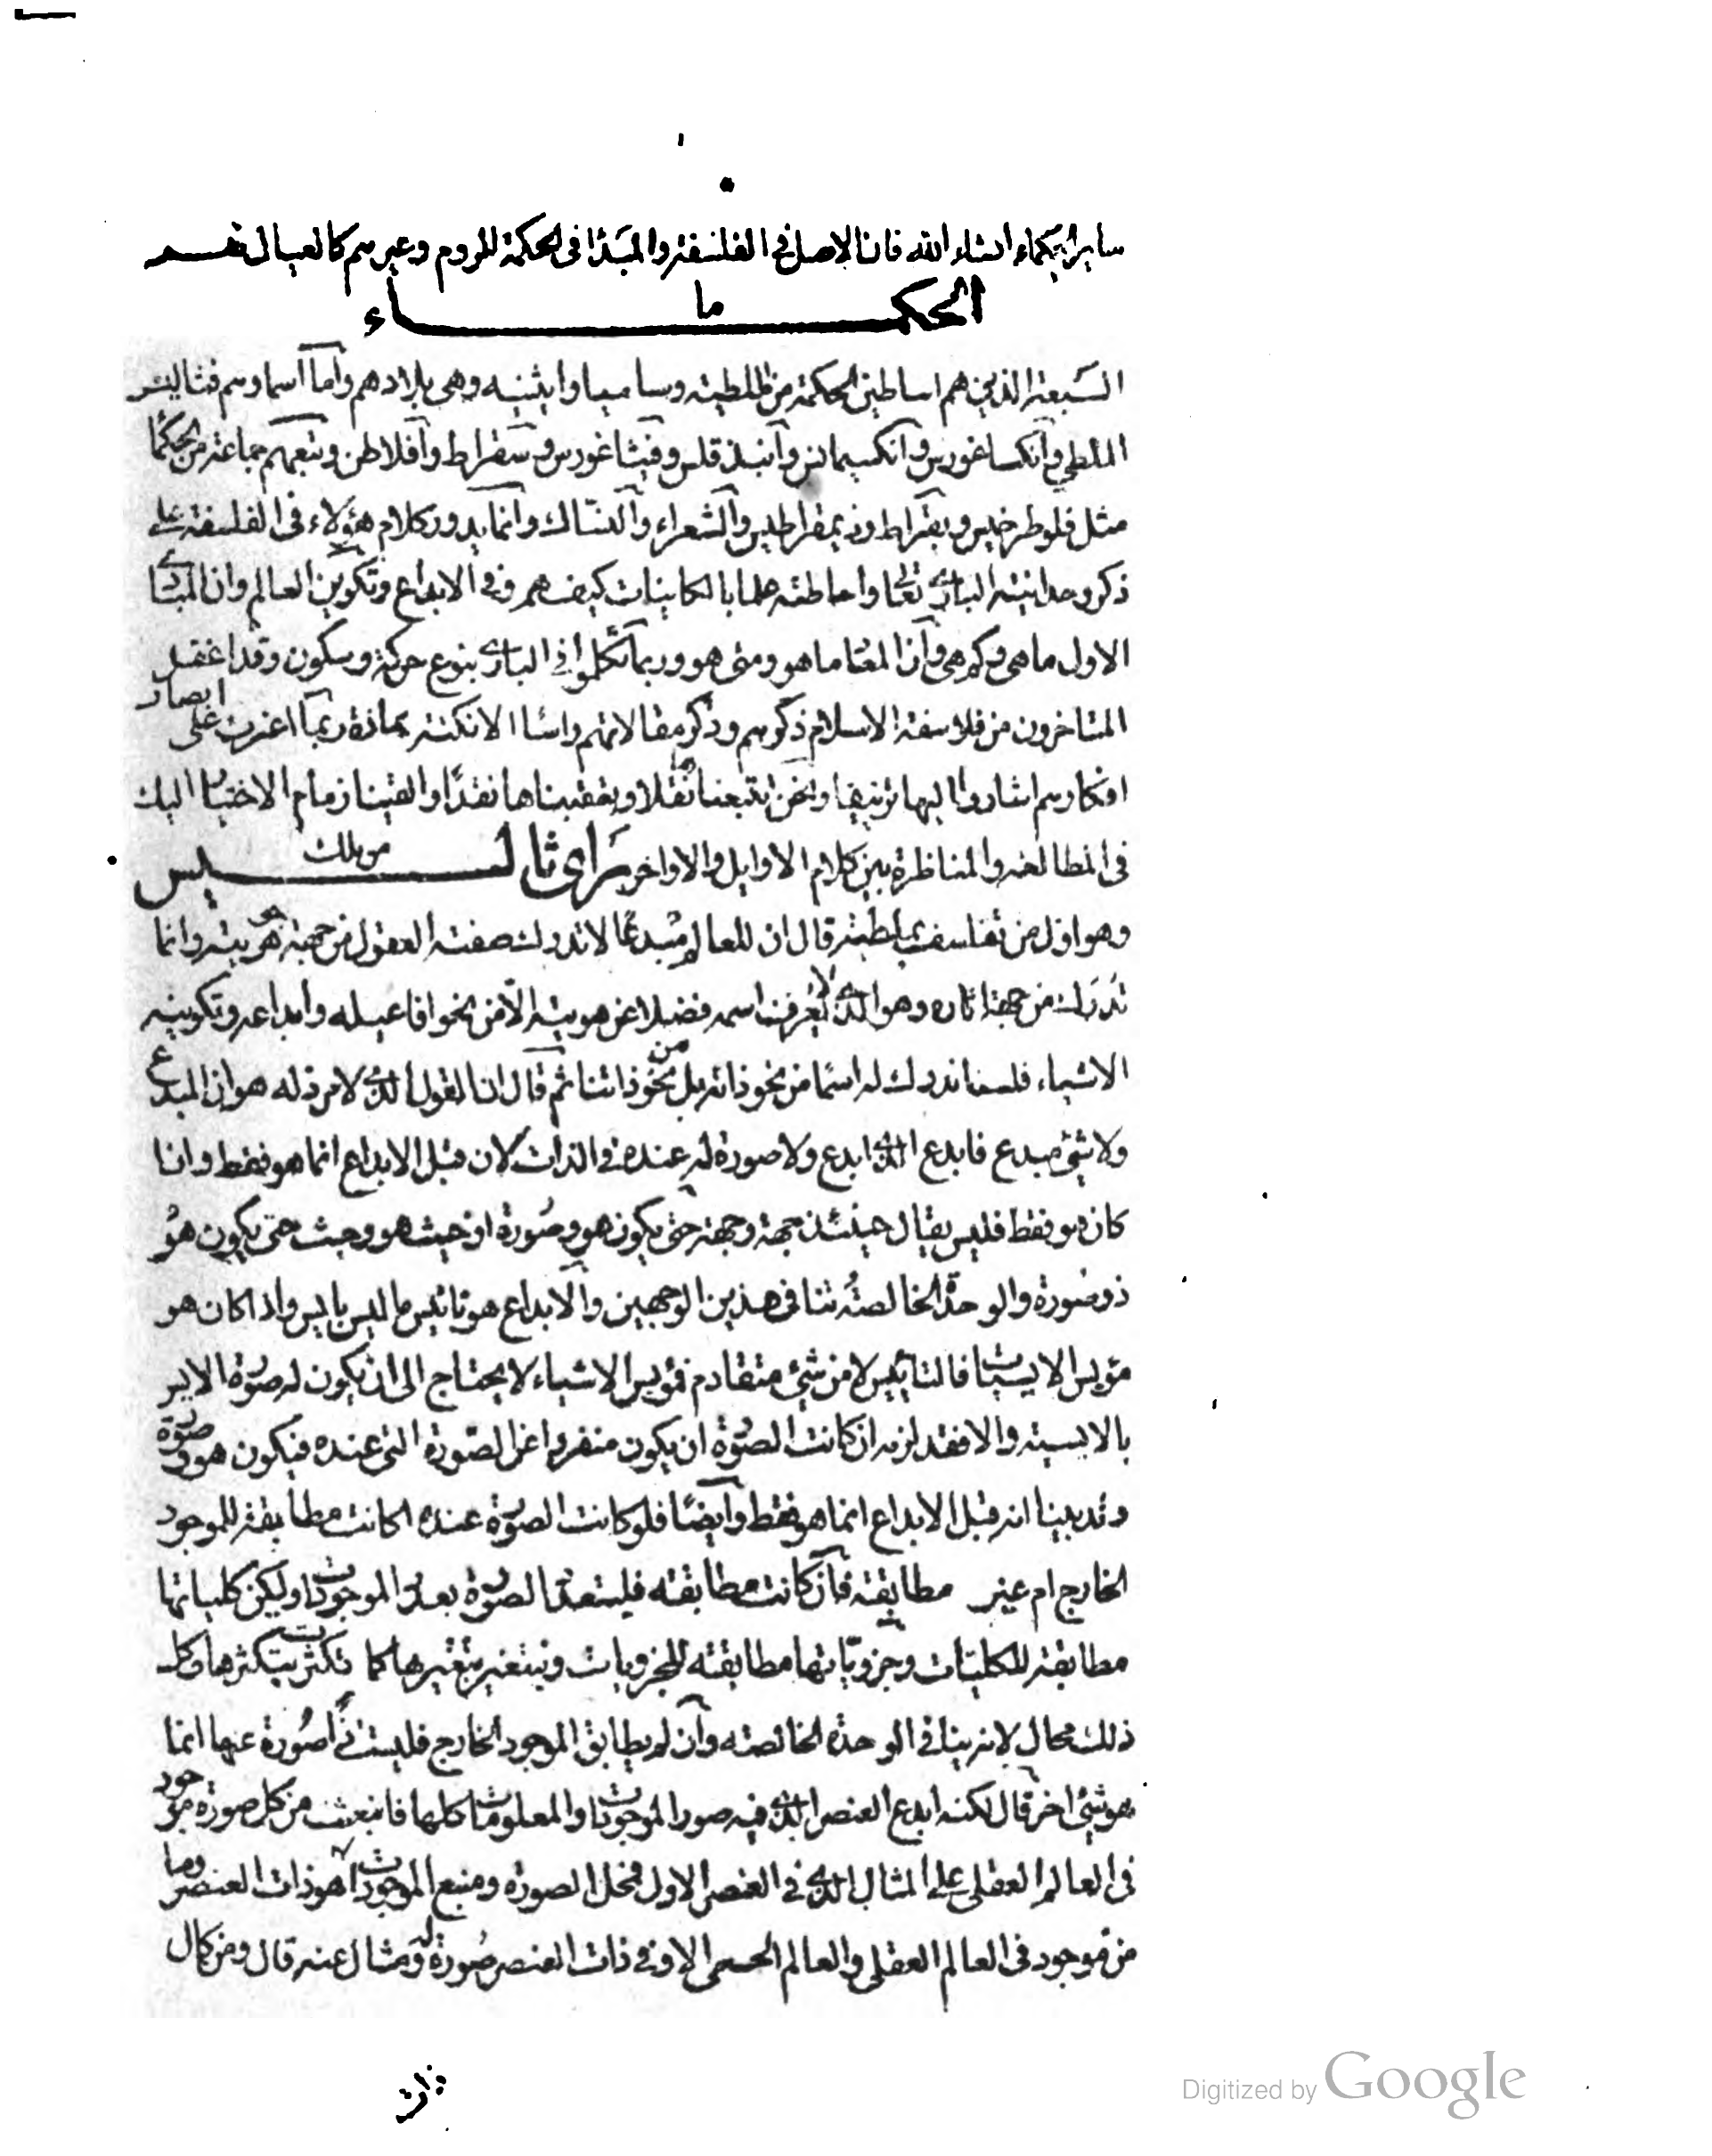 ساير الحكماء انشاء الله فان الاصل في الفلسفة والمبدا فى الحكمة للروم وغيرهم كالعيال لهم
الحكماء
السبعة الذين هم اساطين الحكمة من الملطية وساميا واثينية وهى بلادهم واما اسماوهم فثاليس
الملطي وانكساغورس وانكسيمانس وانبذقلس وفيثاغورس وسقراط وافلاطن وتبعهم جماعة من الحكما
مثل فلوطرخيس وبقراط وذيمقراطيس والشعراء والنساك وانما يدور كلام هؤلاء فى الفلسفة على
ذكر وحدانية البارى تعالى واحاطته علما بالكاينات كيف هي وفي الابداع وتكوين العالم وان المبادى
الاول ما هى وكم هى وان المعاد ما هو ومتى هو وربما تكلموا في البارى بنوع حركة وسكون وقد اغفل
المتاخرون من فلاسفة الاسلام ذكرهم وذكر مقالاتهم راسا الا نكتة شاذة ربما اعثرت على ابصار
افكارهم اشاروا اليها تزييفا ونحن تتبعناها نقلا وتعقبناها نقدا والقينا زمام الاختيار اليك
فى المطالعة والمناظرة بين كلام الاوايل والاواخر راى ثاليس
وهو اول من تفلسف بملطية قال ان للعالم مبدعا لا تدرك صفته العقول من جهة هويته وانما
تدرك من جهة اثاره وهو الذى لا يعرف اسمه فضلا عن هويته الا من نحو افاعيله وابداعه وتكوينه
الاشياء فلسنا ندرك له اسما من نحو ذاته بل من نحو ذاتنا ثم قال ان القول الذى لا مرد له هو ان المبدع
ولا شئ مبدع فابدع الذى ابدع ولا صورة له عنده في الذات لان قبل الابداع انما هو فقط واذا
كان هو فقط فليس يقال حينئذ جهة وجهة حتى يكون هو وصورة او حيث هو وحيث حتى يكون هو
ذو صورة والوحدة الخالصة تنافى هذين الوجهين والابداع هو تاييس ما ليس بايس واذا كان هو
مؤيس الايسيات فالتاييس لا من شئ متقادم فمؤيس الاشياء لا يحتاج الى ان يكون له صورة الايس
بالايسية والا فقد لزمه ان كانت الصورة ان يكون منفردا عن الصورة التى عنده فيكون هو وصورة
وقد بينا انه قبل الابداع انما هو فقط وايضا فلو كانت الصورة عنده اكانت مطابقة للموجود
الخارج ام غير مطابقة فان كانت مطابقة فليتعدد الصورة بعدد الموجودات وليكن كلياتها
مطابقة للكليات وجزوياتها مطابقة للجزويات وتتغير بتغيرها كما تكثرت بتكثرها وكل
ذلك محال لانه ينافى الوحدة الخالصة وان لم يطابق الموجود الخارج فليست اذا صورة عنها انما
هو شئ اخر قال لكنه ابدع العنصر الذى فيه صور الموجودات والمعلومات كلها فانبعث من كل صورة موجود
فى العالم العقلى على المثال الذى في العنصر الاول فمحل الصورة ومنبع الموجودات هو ذات العنصر وما
من موجود فى العالم العقلى والعالم الحسى الا وفى ذات العنصر صورة له ومثال عنه قال ومن كمال
ذات
Digitized by Google